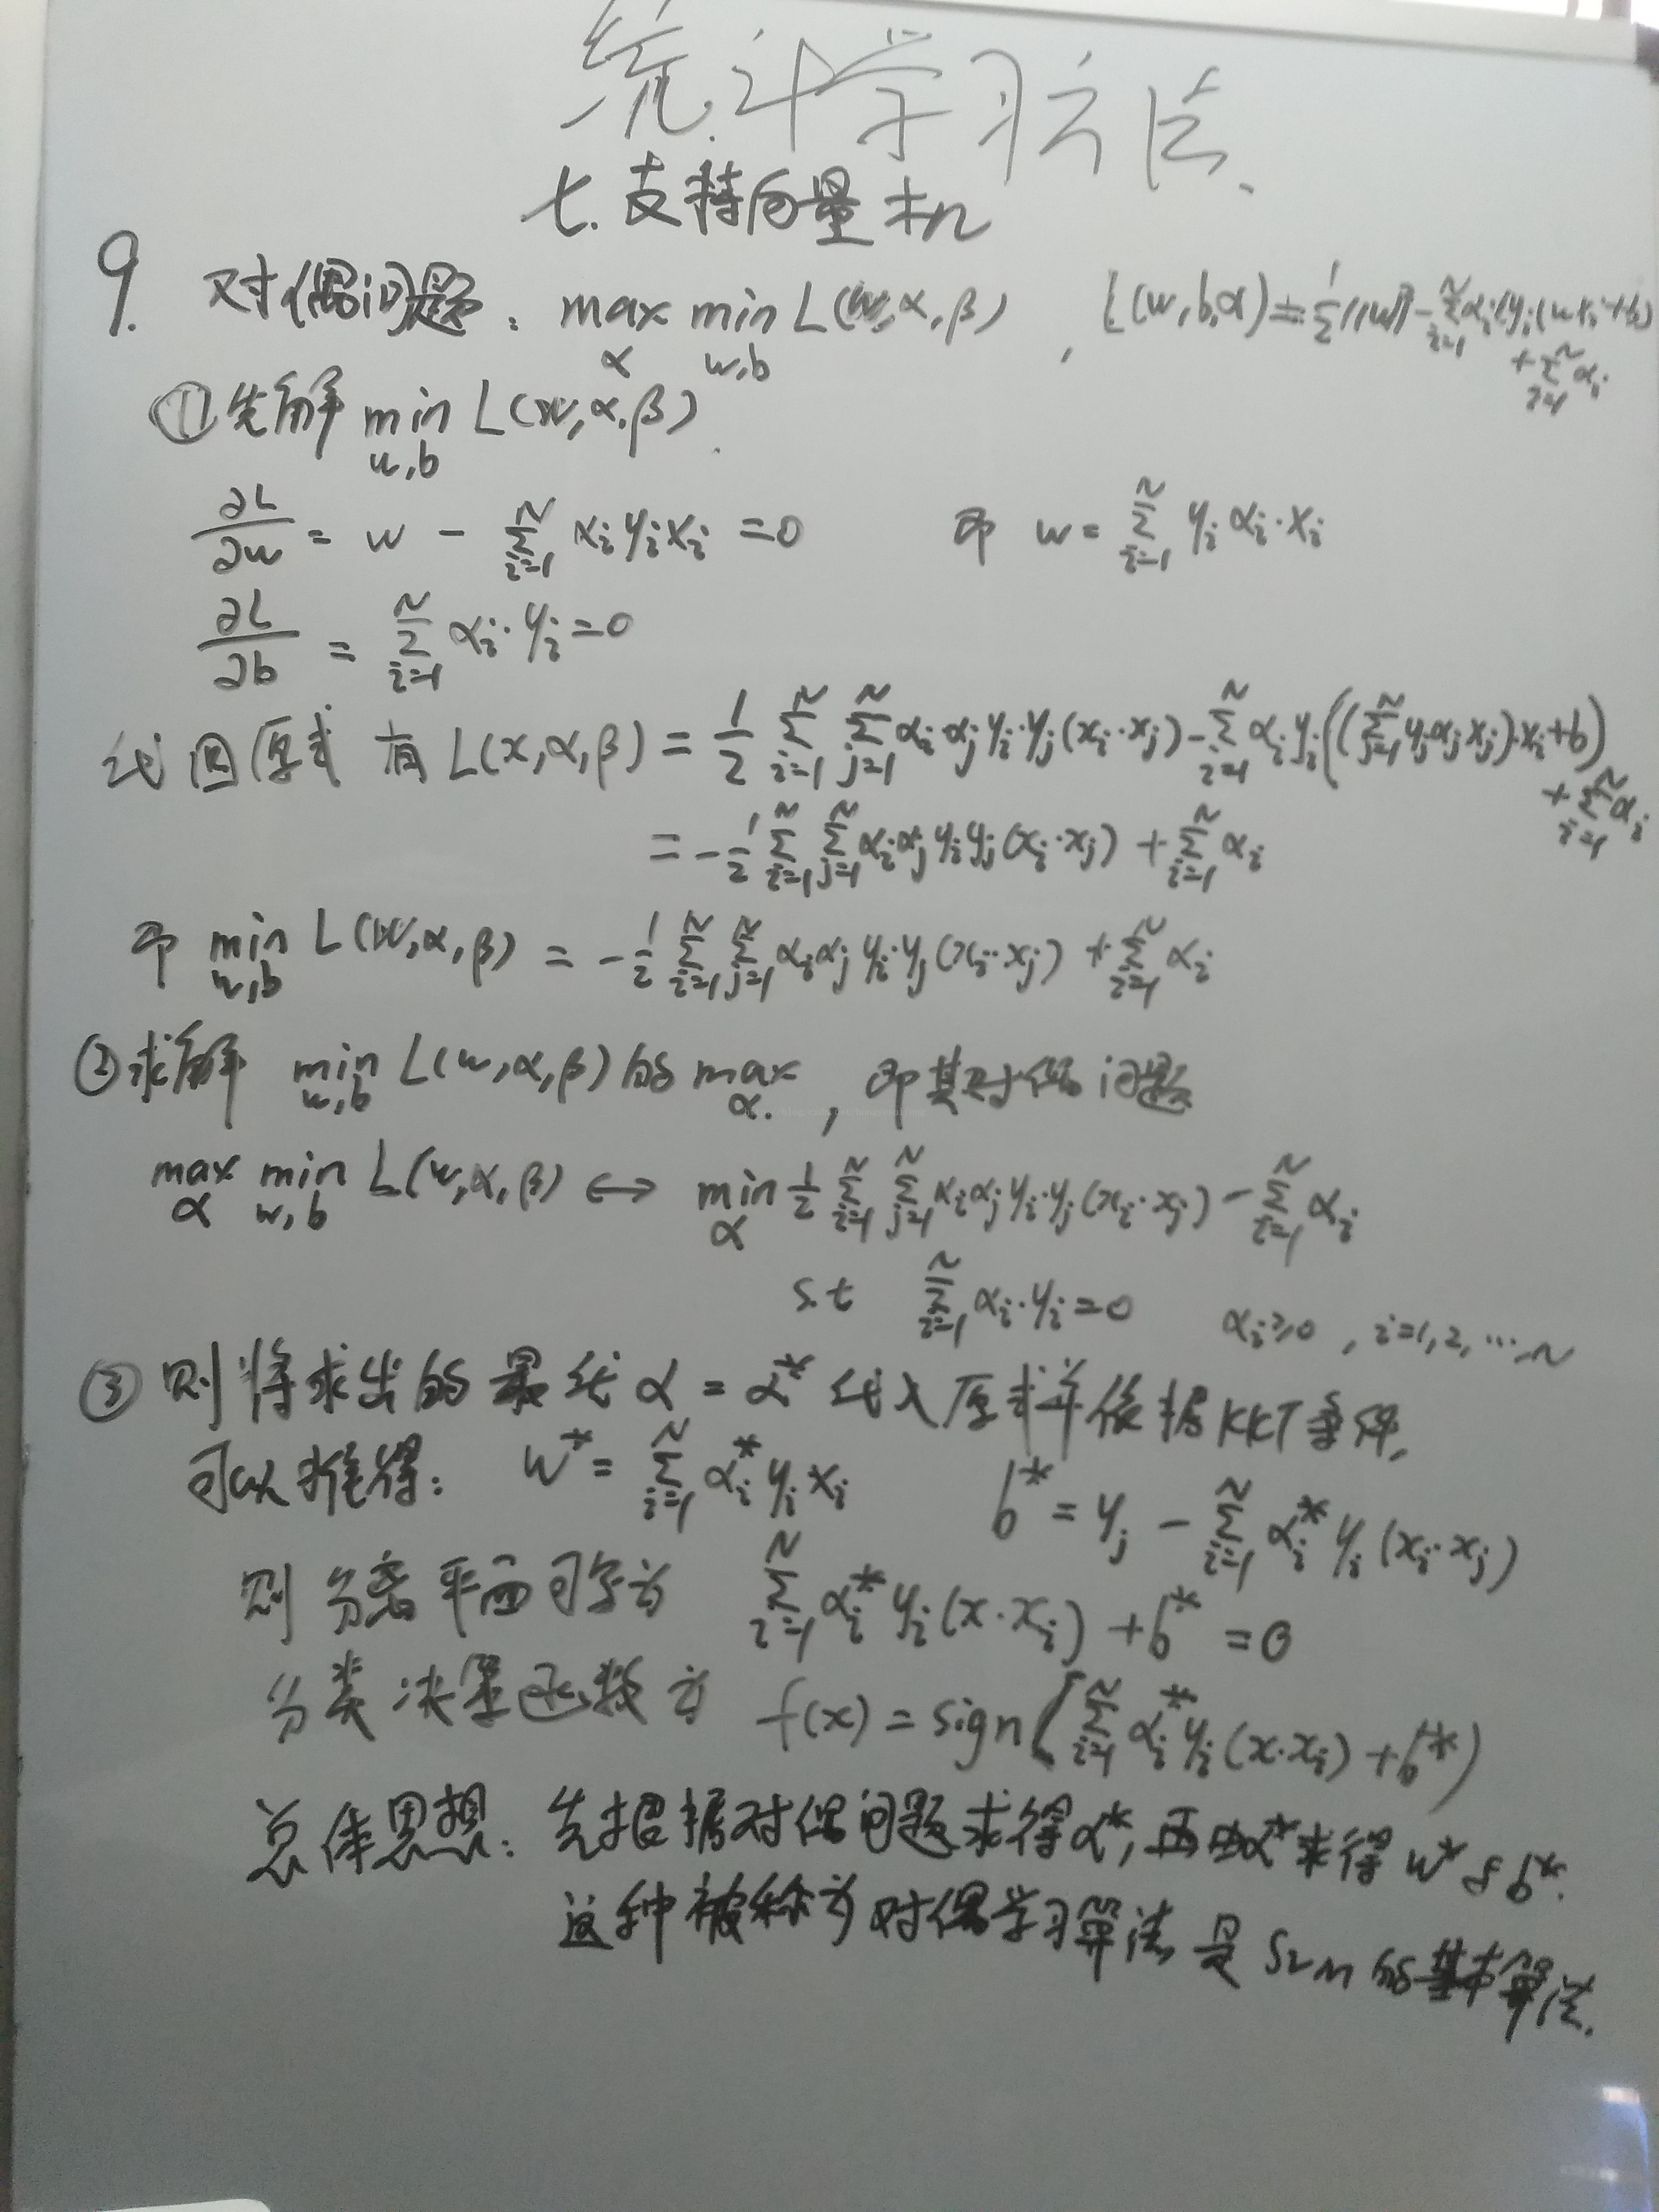 统计学习方法.
七.支持向量机
9. 对偶问题: max_α min_{w,b} L(w,α,β) , L(w,b,α) = 1/2 ||w||² - Σ_{i=1}^N α_i y_i(w x_i + b) + Σ_{i=1}^N α_i
①先解 min_{w,b} L(w,α,β).
∂L/∂w = w - Σ_{i=1}^N α_i y_i x_i = 0 即 w = Σ_{i=1}^N y_i α_i·x_i
∂L/∂b = Σ_{i=1}^N α_i·y_i = 0
代回原式 有 L(x,α,β) = 1/2 Σ_{i=1}^N Σ_{j=1}^N α_i·α_j y_i·y_j (x_i·x_j) - Σ_{i=1}^N α_i y_i((Σ_{j=1}^N y_j α_j x_j)·x_i + b) + Σ_{i=1}^N α_i
= -1/2 Σ_{i=1}^N Σ_{j=1}^N α_i α_j y_i y_j (x_i·x_j) + Σ_{i=1}^N α_i
即 min_{w,b} L(w,α,β) = -1/2 Σ_{i=1}^N Σ_{j=1}^N α_i α_j y_i·y_j (x_i·x_j) + Σ_{i=1}^N α_i
②求解 min_{w,b} L(w,α,β)的 max_α. , 即其对偶问题
max_α min_{w,b} L(w,α,β) ↔ min_α 1/2 Σ_{i=1}^N Σ_{j=1}^N α_i α_j y_i·y_j (x_i·x_j) - Σ_{i=1}^N α_i
s.t Σ_{i=1}^N α_i·y_i = 0 α_i ≥ 0 , i=1,2,…,N
③则将求出的最优 α = α* 代入原式并依据KKT条件,
可以推得: w* = Σ_{i=1}^N α_i* y_i x_i b* = y_j - Σ_{i=1}^N α_i* y_i (x_i·x_j)
则分离平面可写为 Σ_{i=1}^N α_i* y_i (x·x_i) + b* = 0
分类决策函数为 f(x) = sign(Σ_{i=1}^N α_i* y_i (x·x_i) + b*)
总体思想: 先根据对偶问题求得α*, 再由α*求得 w* & b*.
这种被称为对偶学习算法 是 SVM的基本算法.